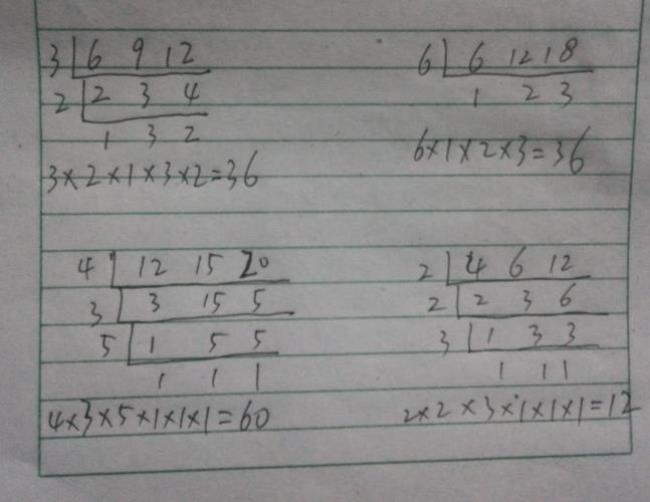 3 6 9 12
2 2 3 4
1 3 2
3×2×1×3×2=36
6 6 12 18
1 2 3
6×1×2×3=36
4 12 15 20
3 3 15 5
5 1 5 5
1 1 1
4×3×5×1×1×1=60
2 4 6 12
2 2 3 6
3 1 3 3
1 1 1
2×2×3×1×1×1=12